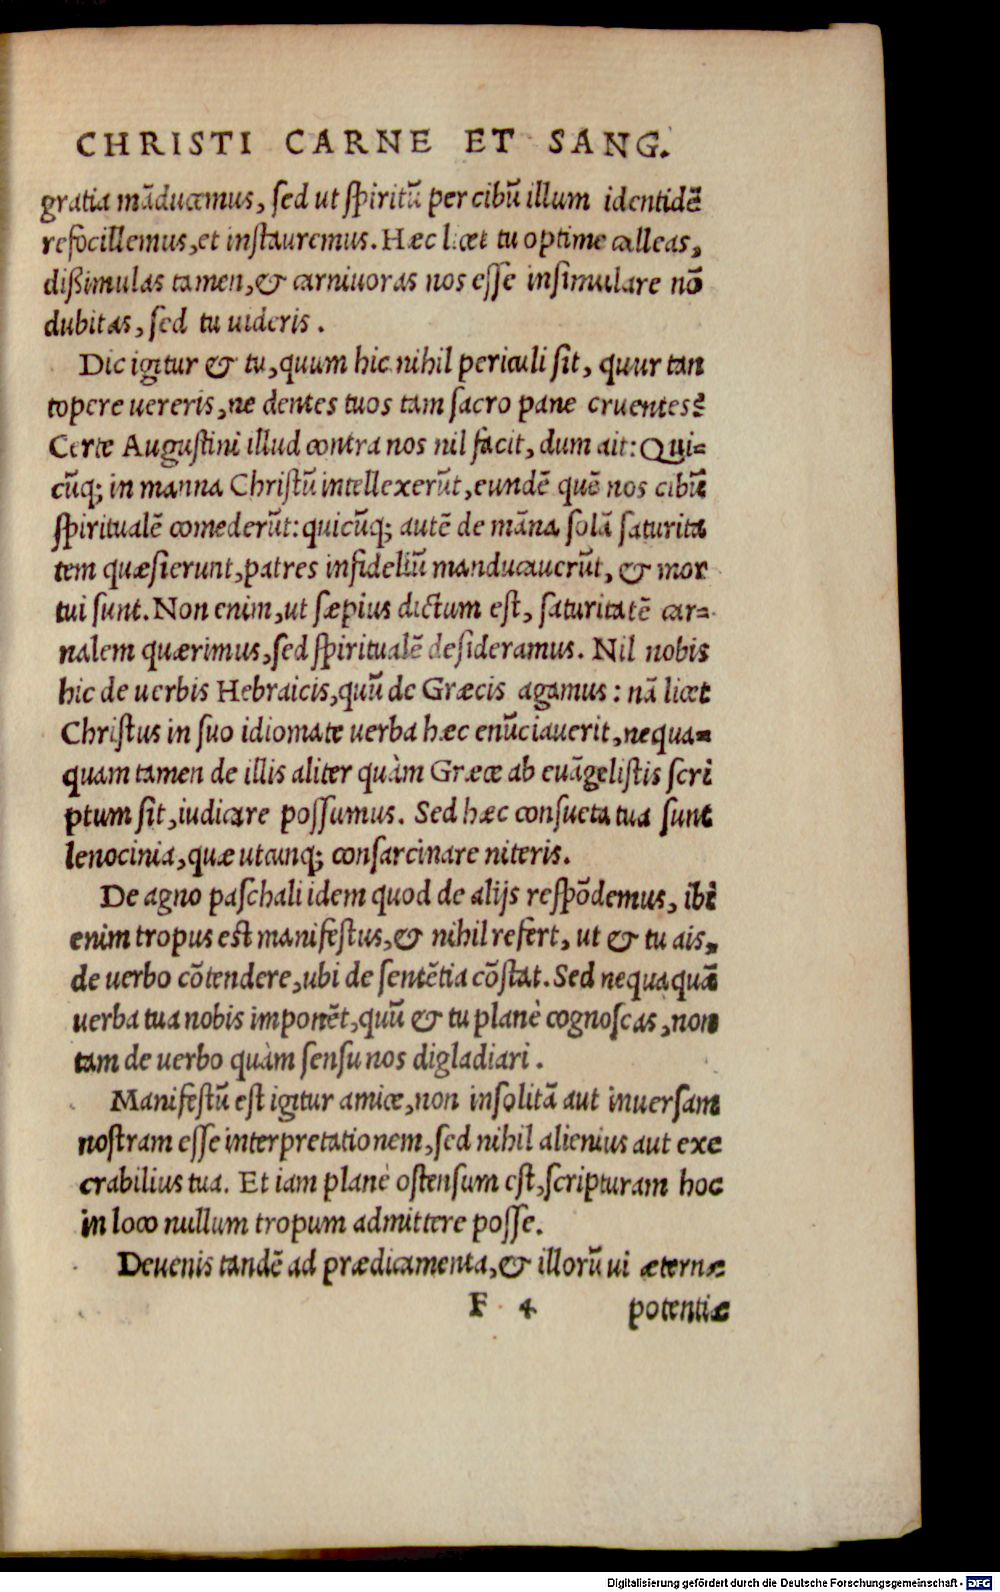 CHRISTI CARNE ET SANG.
gratia mãducemus, sed ut spiritũ per cibũ illum identidẽ
refocillemus, et instauremus. Hæc licet tu optime calleas,
dißimulas tamen, & carniuoras nos esse insimulare nõ
dubitas, sed tu uideris.
Dic igitur & tu, quum hic nihil periculi sit, quur tan
topere uereris, ne dentes tuos tam sacro pane cruentes?
Certe Augustini illud contra nos nil facit, dum ait: Qui=
cũq; in manna Christũ intellexerũt, eundẽ quẽ nos cibũ
spiritualẽ comederũt: quicũq; autẽ de mãna solã saturita
tem quæsierunt, patres infideliũ manducauerũt, & mor
tui sunt. Non enim, ut sæpius dictum est, saturitatẽ car=
nalem quærimus, sed spiritualẽ desideramus. Nil nobis
hic de uerbis Hebraicis, quũ de Græcis agamus: nã licet
Christus in suo idiomate uerba hæc enũciauerit, nequa=
quam tamen de illis aliter quàm Græce ab euãgelistis scri
ptum sit, iudicare possumus. Sed hæc consueta tua sunt
lenocinia, quæ utcunq; consarcinare niteris.
De agno paschali idem quod de alijs respõdemus, ibi
enim tropus est manifestus, & nihil refert, ut & tu ais,
de uerbo cõtendere, ubi de sentẽtia cõstat. Sed nequaquã
uerba tua nobis imponẽt, quũ & tu planè cognoscas, non
tam de uerbo quàm sensu nos digladiari.
Manifestũ est igitur amice, non insolitã aut inuersam
nostram esse interpretationem, sed nihil alienius aut exe
crabilius tua. Et iam planè ostensum est, scripturam hoc
in loco nullum tropum admittere posse.
Deuenis tandẽ ad prædicamenta, & illorũ ui æternæ
F 4 potentiæ
Digitalisierung gefördert durch die Deutsche Forschungsgemeinschaft - DFG